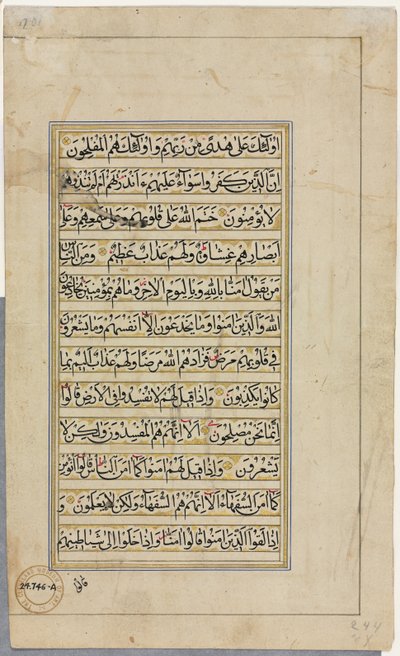 اولٓئك على هدًى من ربهم واولٓئك هم المفلحون
ان الذين كفروا سوآء عليهم ءانذرتهم ام لم تنذرهم
لا يؤمنون ختم الله على قلوبهم وعلى سمعهم وعلى
ابصارهم غشاوة ولهم عذاب عظيم ومن الناس
من يقول امنا بالله وباليوم الاخر وما هم بمؤمنين يخادعون
الله والذين امنوا وما يخدعون الا انفسهم وما يشعرون
في قلوبهم مرض فزادهم الله مرضا ولهم عذاب اليم بما
كانوا يكذبون واذا قيل لهم لا تفسدوا فى الارض قالوا
انما نحن مصلحون الآ انهم هم المفسدون ولكن لا
يشعرون واذا قيل لهم امنوا كمآ امن الناس قالوا انؤمن
كمآ امن السفهآء الآ انهم هم السفهآء ولكن لا يعلمون و
اذا لقوا الذين امنوا قالوا امنا واذا خلوا الى شياطينهم
قالوا
24.746-A
244